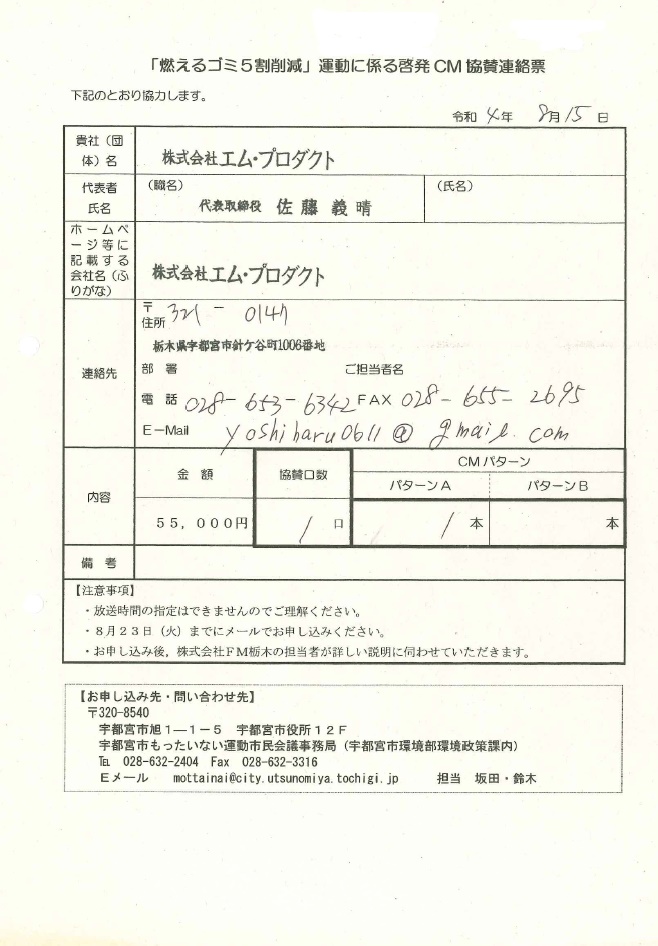 「燃えるゴミ５割削減」運動に係る啓発ＣＭ協賛連絡票
下記のとおり協力します。
令和 4年 8月15日
貴社（団体）名
株式会社エム・プロダクト
代表者氏名
（職名）
代表取締役 佐藤義晴
（氏名）
ホームページ等に記載する会社名（ふりがな）
株式会社エム・プロダクト
連絡先
〒
住所 321-0147
栃木県宇都宮市針ケ谷町1006番地
部署 ご担当者名
電話 028-653-6342 FAX 028-655-2695
E－Mail yoshiharu0611@gmail.com
内容
金額 協賛口数 ＣＭパターン
パターンＡ パターンＢ
５５，０００円 1 口 1 本 本
備考
【注意事項】
・放送時間の指定はできませんのでご理解ください。
・８月２３日（火）までにメールでお申し込みください。
・お申し込み後，株式会社ＦＭ栃木の担当者が詳しい説明に伺わせていただきます。
【お申し込み先・問い合わせ先】
〒320-8540
宇都宮市旭１－１－５ 宇都宮市役所１２Ｆ
宇都宮市もったいない運動市民会議事務局（宇都宮市環境部環境政策課内）
℡ 028-632-2404 Fax 028-632-3316
Ｅメール mottainai@city.utsunomiya.tochigi.jp 担当 坂田・鈴木